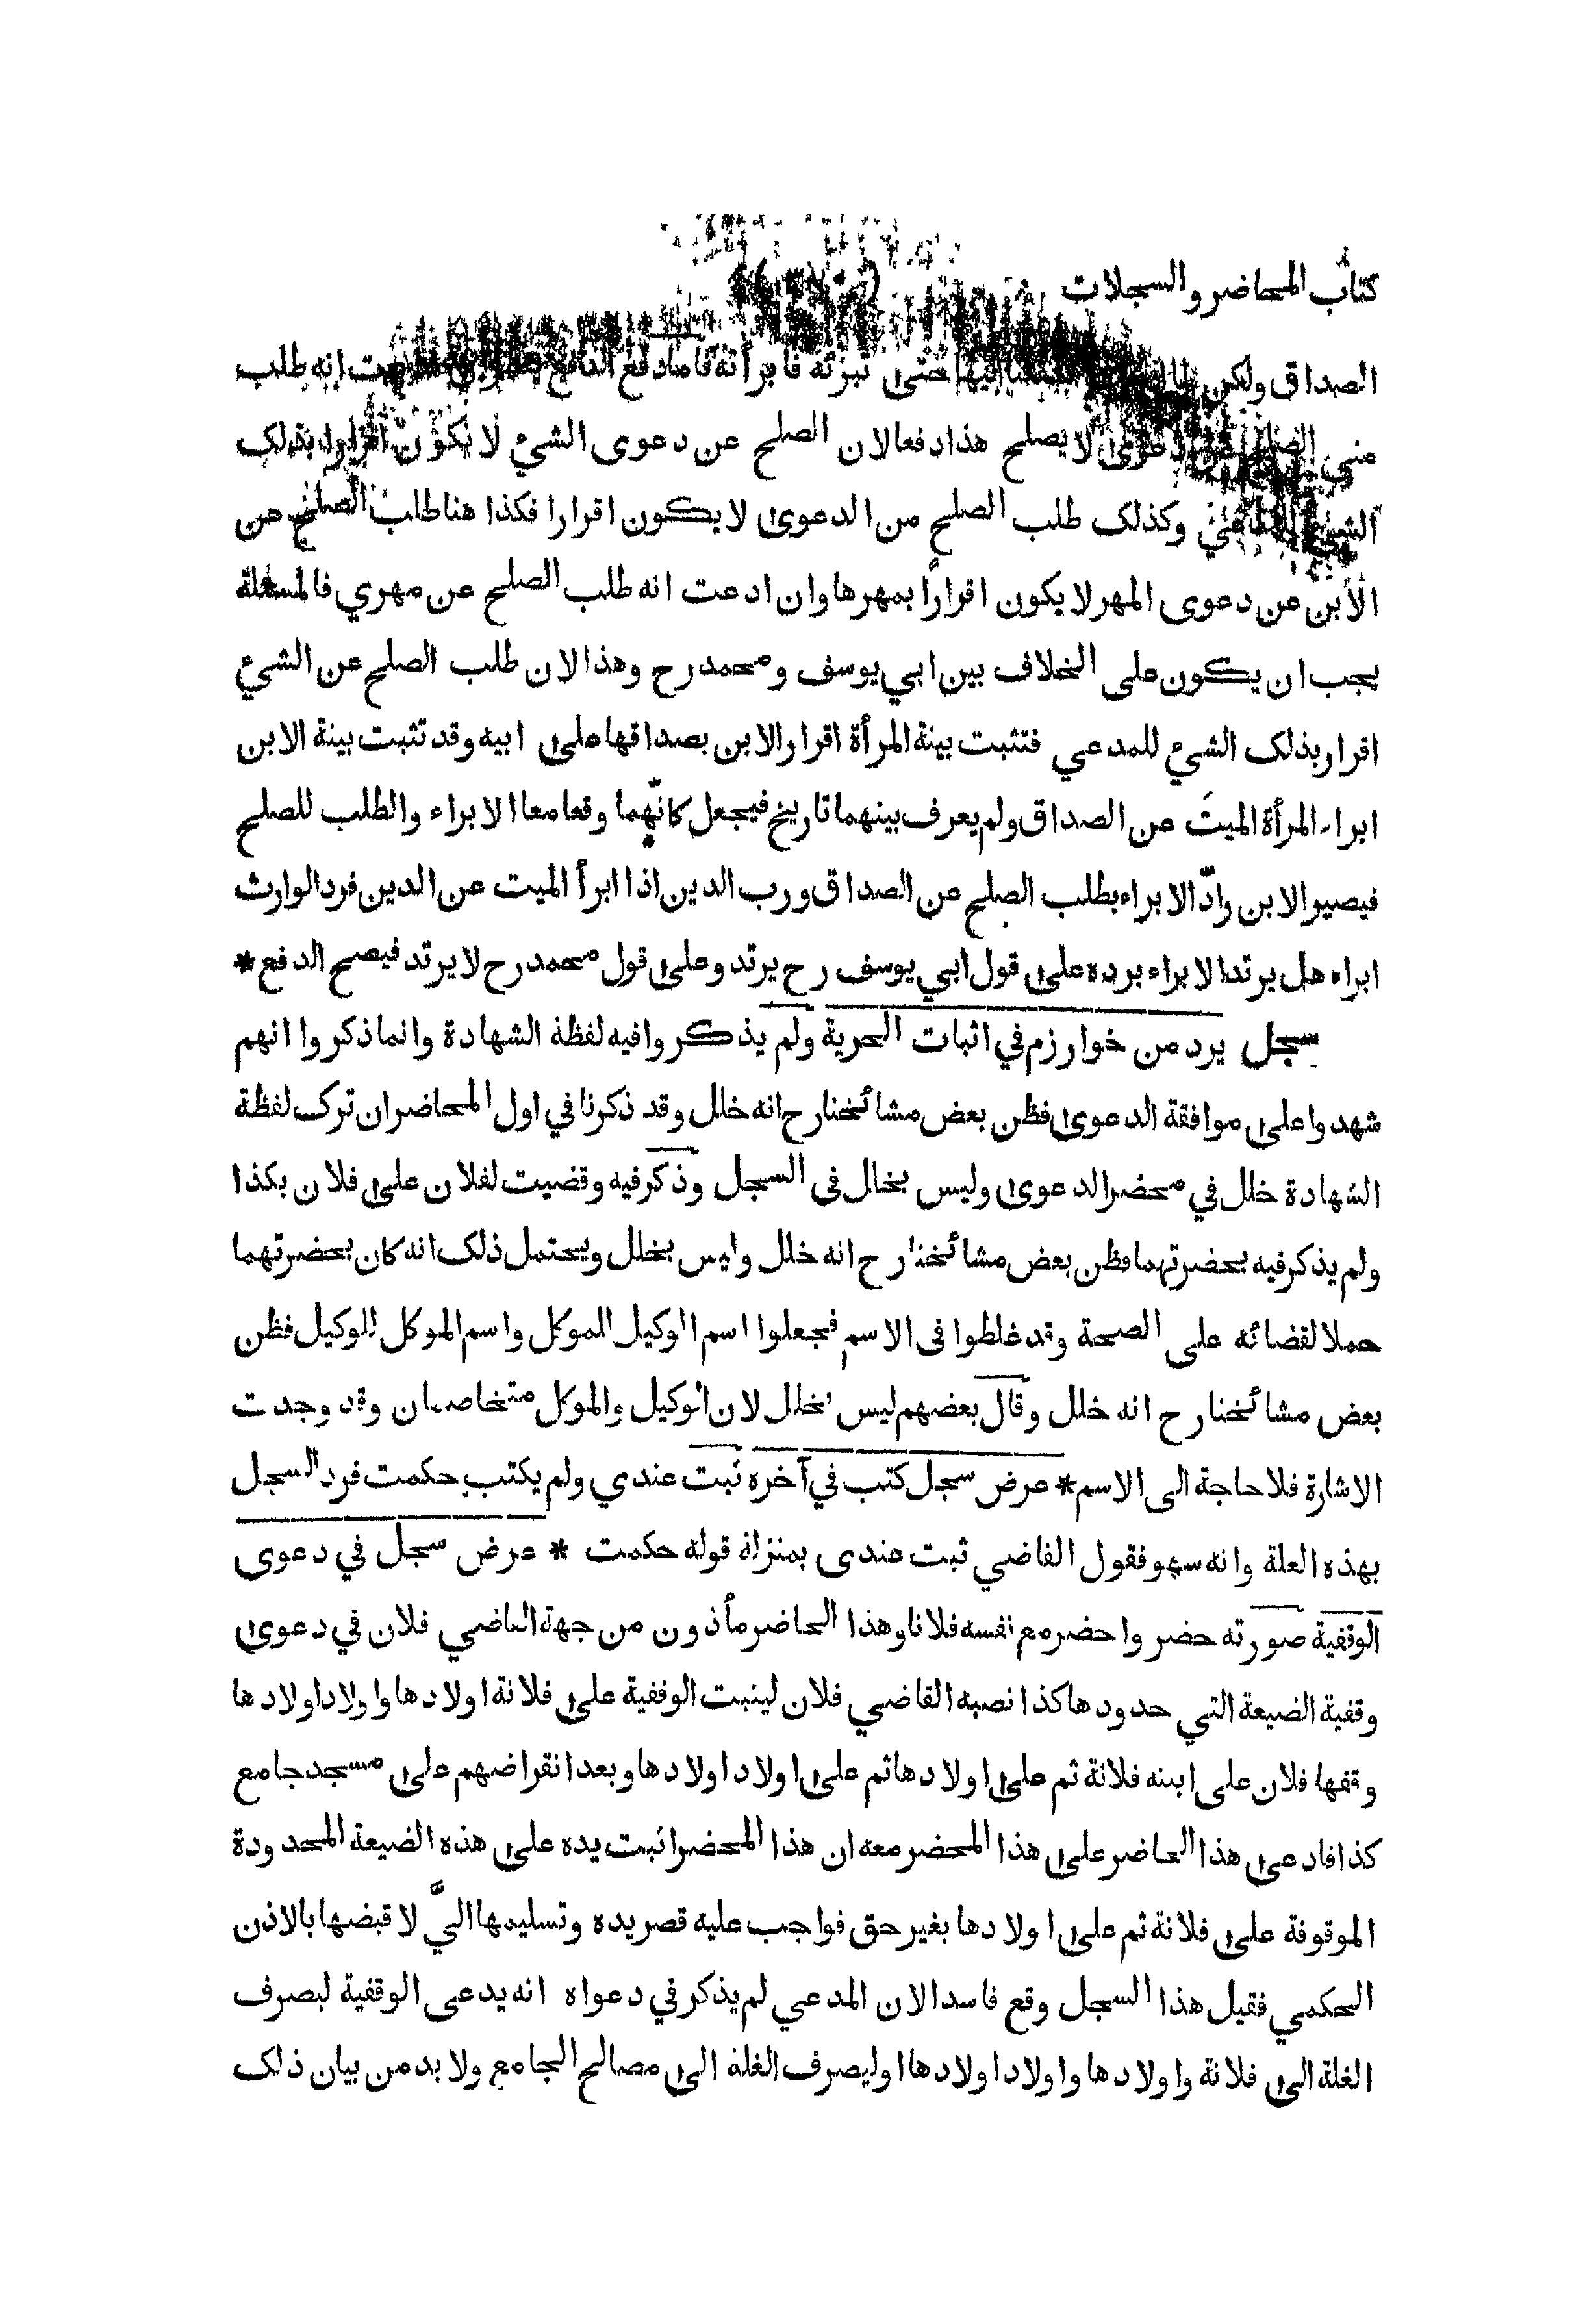 كتاب المحاضر والسجلات
الصداق ولكن حتى تبرئه فابرأته فاماد فع انه طلب
مني الصلح عن دعوى لا يصلح هذا دفعا لان الصلح عن دعوى الشيء لا يكون اقرارا بذلك
الشيء للمدعي وكذلك طلب الصلح من الدعوى لا يكون اقرارا فكذا هنا طلب الصلح عن
الابن عن دعوى المهر لا يكون اقرارًا بمهرها وان ادعت انه طلب الصلح عن مهري فالمسئلة
يجب ان يكون على الخلاف بين ابي يوسف ومحمد رح وهذا لان طلب الصلح عن الشيء
اقرار بذلك الشيء للمدعي فتثبت بينة المرأة اقرار الابن بصداقها على ابيه وقد تثبت بينة الابن
ابراء المرأة الميتَ عن الصداق ولم يعرف بينهما تاريخ فيجعل كانّهما وقعا معا الابراء والطلب للصلح
فيصير الابن رادّ الابراء بطلب الصلح عن الصداق ورب الدين اذا ابرأ الميت عن الدين فرد الوارث
ابراه هل يرتد الابراء برده على قول ابي يوسف رح يرتد وعلى قول محمد رح لا يرتد فيصح الدفع *
سجل يرد من خوارزم في اثبات الحرية ولم يذكروا فيه لفظة الشهادة وانما ذكروا انهم
شهدوا على موافقة الدعوى فظن بعض مشائخنا رح انه خلل وقد ذكرنا في اول المحاضر ان ترك لفظة
الشهادة خلل في محضر الدعوى وليس بخلل في السجل وذكر فيه وقضيت لفلان على فلان بكذا
ولم يذكر فيه بحضرتهما فظن بعض مشائخنا رح انه خلل وليس بخلل ويحتمل ذلك انه كان بحضرتهما
حملا لقضائه على الصحة وقد غلطوا في الاسم فجعلوا اسم الوكيل للموكل واسم الموكل للوكيل فظن
بعض مشائخنا رح انه خلل وقال بعضهم ليس بخلل لان الوكيل والموكل متخاصمان وقد وجدت
الاشارة فلا حاجة الى الاسم * عرض سجل كتب في آخره ثبت عندي ولم يكتب حكمت فرد السجل
بهذه العلة وانه سهو فقول القاضي ثبت عندى بمنزلة قوله حكمت * عرض سجل في دعوى
الوقفية صورته حضر واحضر مع نفسه فلانا وهذا الحاضر مأذون من جهة القاضي فلان في دعوى
وقفية الضيعة التي حدودها كذا نصبه القاضي فلان ليثبت الوقفية على فلانة اولادها واولاد اولادها
وقفها فلان على ابنته فلانة ثم على اولادها ثم على اولاد اولادها وبعد انقراضهم على مسجد جامع
كذا فادعى هذا الحاضر على هذا المحضر معه ان هذا المحضر اثبت يده على هذه الضيعة المحدودة
الموقوفة على فلانة ثم على اولادها بغير حق فواجب عليه قصر يده وتسليمها اليَّ لاقبضها بالاذن
الحكمي فقيل هذا السجل وقع فاسدا لان المدعي لم يذكر في دعواه انه يدعى الوقفية ليصرف
الغلة الى فلانة واولادها واولاد اولادها او ليصرف الغلة الى مصالح الجامع ولا بد من بيان ذلك